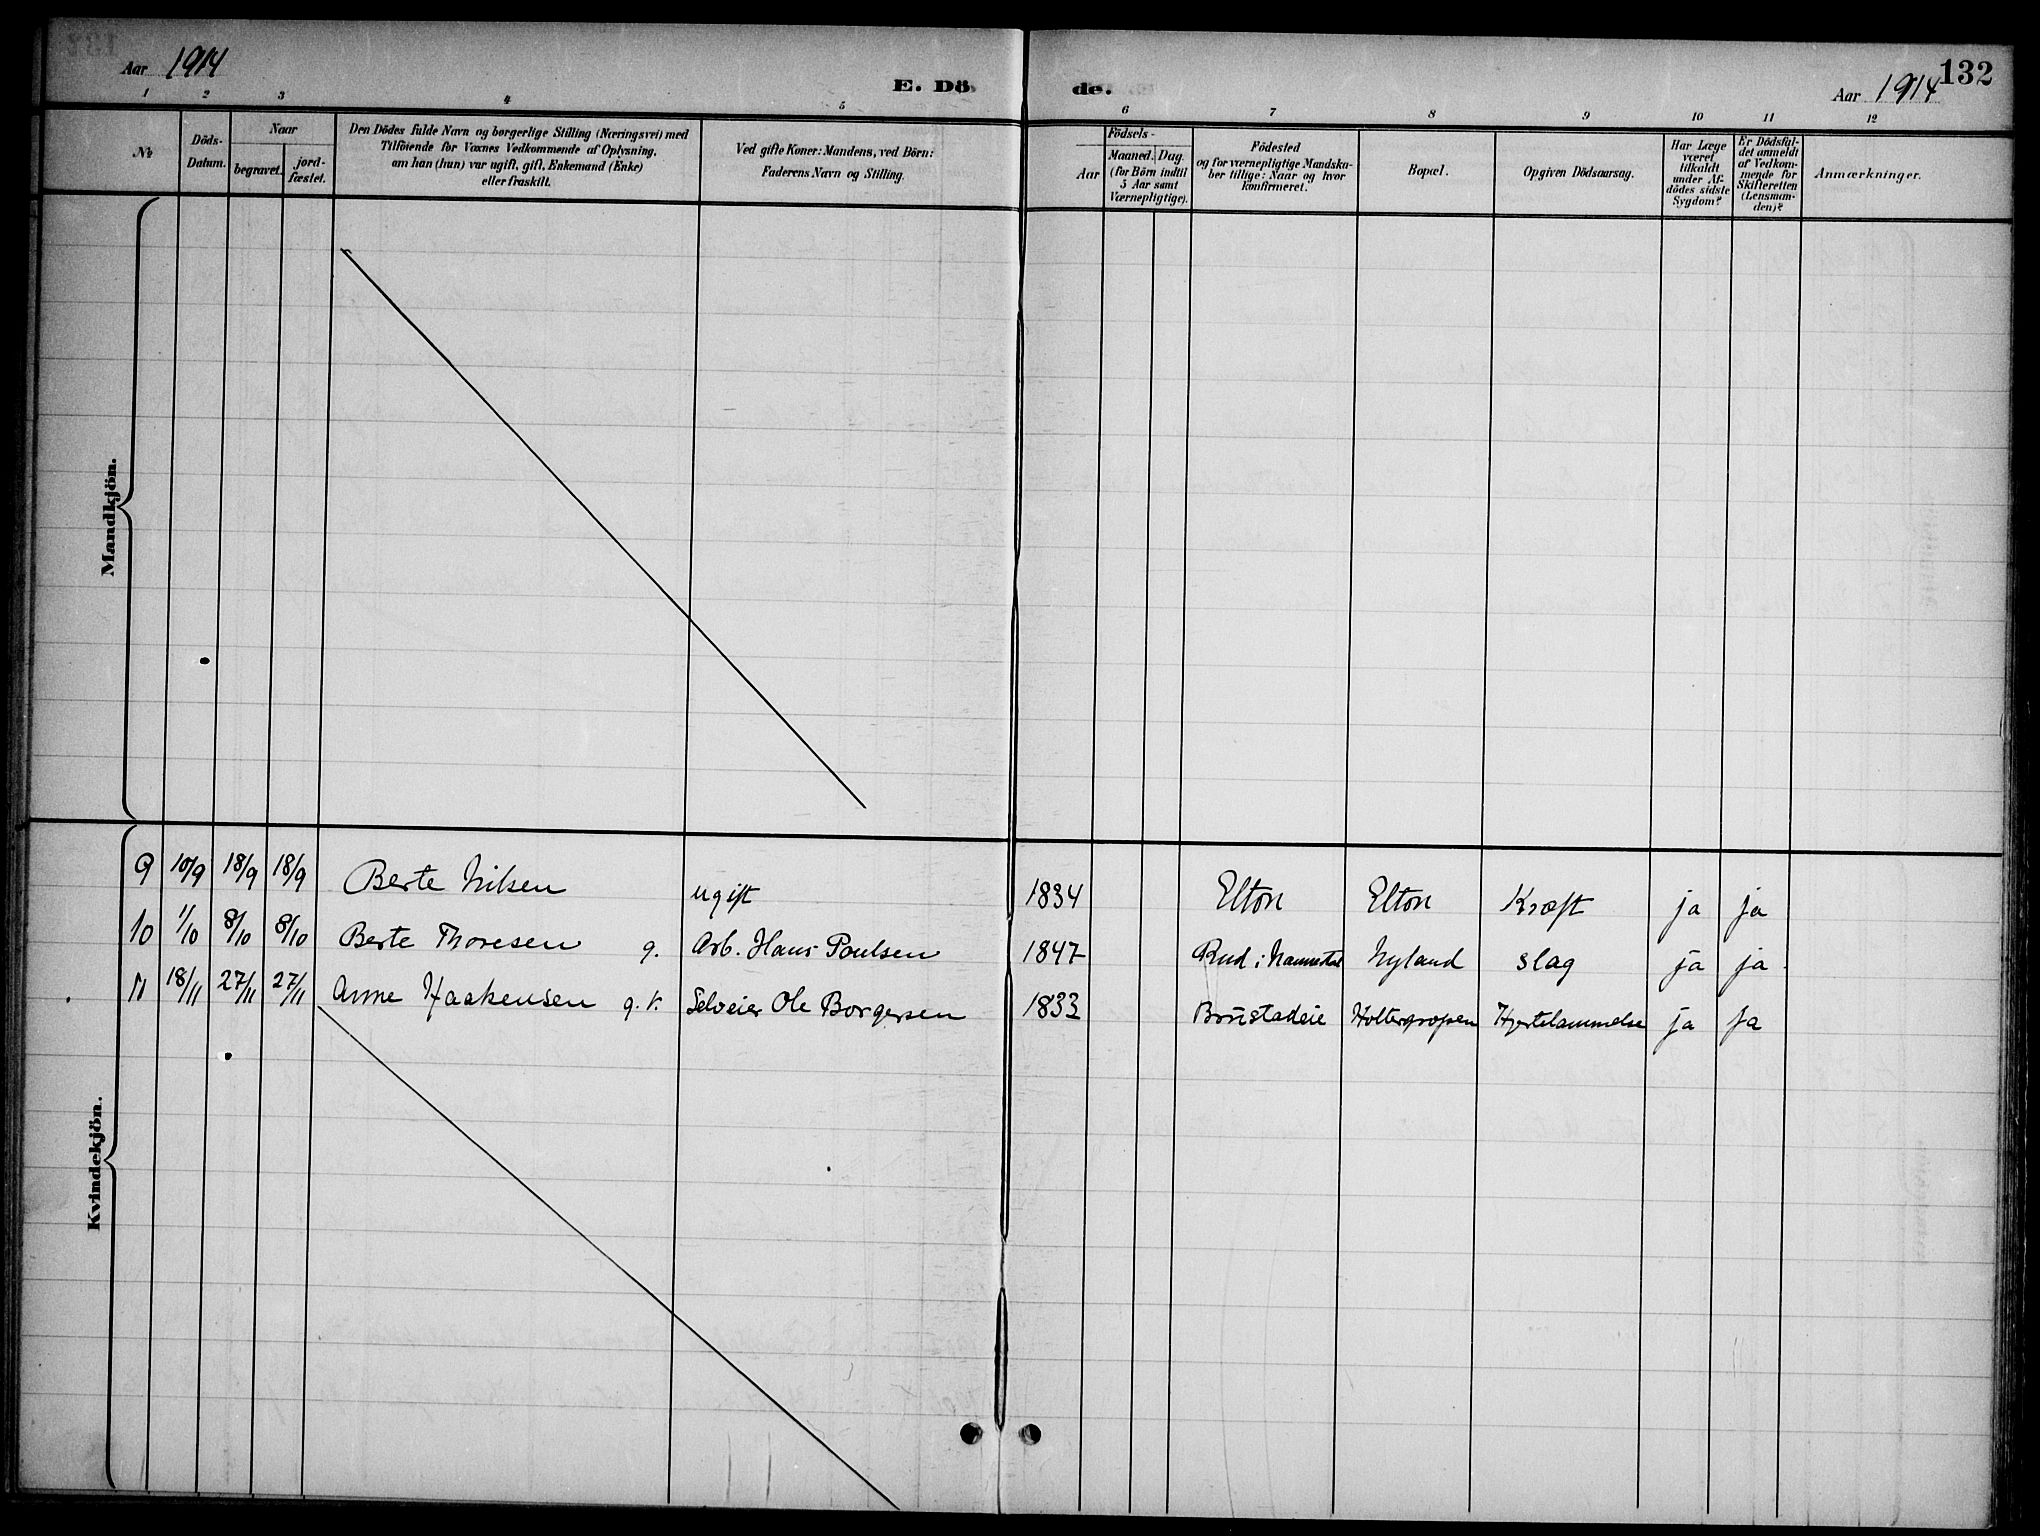 Aar 1914
E. Dö
de.
Aar 1914
132
1 2 3 4 5 6 7 8 9 10 11 12
No
Döds-
Datum.
Naar
begravet.
jord-
fæstet.
Den Dödes fulde Navn og borgerlige Stilling (Næringsvei) med
Tilföiende for Voxnes Vedkommende af Oplysning,
om han (hun) var ugift, gift, Enkemand (Enke)
eller fraskilt.
Ved gifte Koner: Mandens, ved Börn:
Faderens Navn og Stilling.
Födsels-
Aar
Maaned. Dag
(for Börn indtil
5 Aar samt
Værnepligtige).
Födested
og for værnepligtige Mandska-
ber tillige: Naar og hvor
konfirmeret.
Bopæl.
Opgiven Dödsaarsag.
Har Læge
været
tilkaldt
under Af-
dödes sidste
Sygdom?
Er Dödsfal-
det anmeldt
af Vedkom-
mende for
Skifteretten
(Lensman-
den)?
Anmærkninger.
Mandkjön.
Kvindekjön.
9 10/9 18/9 18/9 Berte Nilsen ugift 1834 Elton Elton Kræft ja ja
10 1/10 8/10 8/10 Berte Thoresen g. Arb. Hans Poulsen 1847 Rud i Nannestad Nyland slag ja ja
11 18/11 27/11 27/11 Anne Haakensen g. k. Selveier Ole Borgersen 1833 Brustadeie Holtergropen Hjertelammelse ja ja